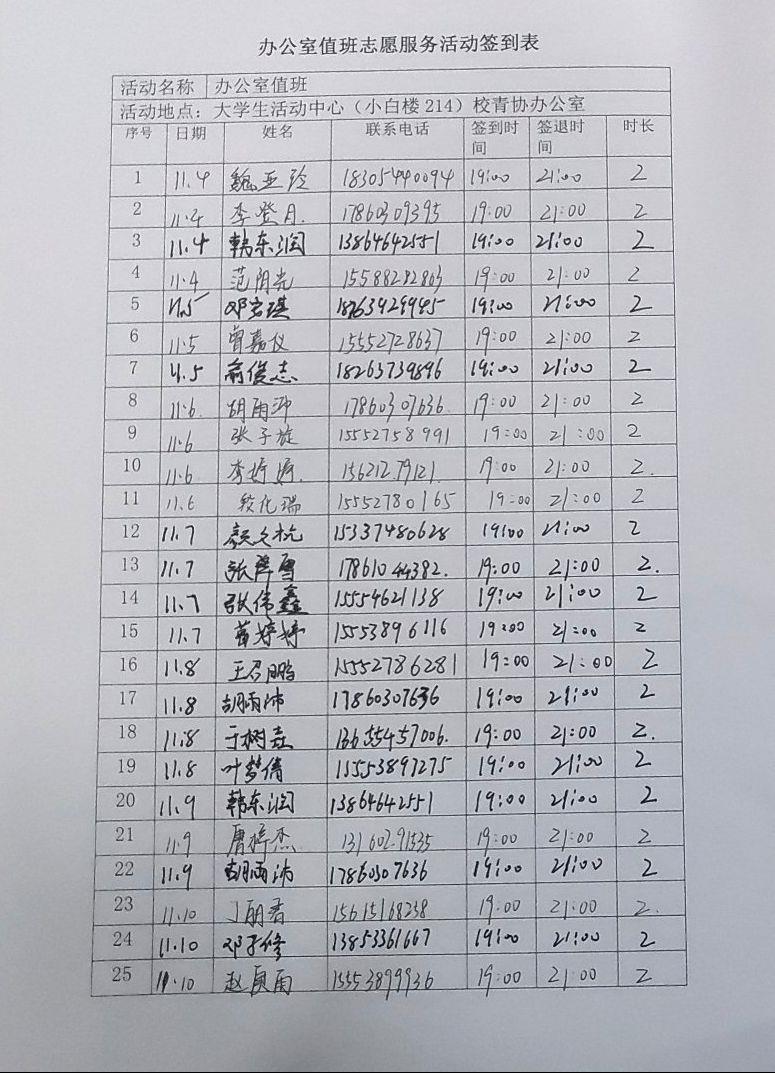 办公室值班志愿服务活动签到表
活动名称 办公室值班
活动地点：大学生活动中心（小白楼 214）校青协办公室
序号 日期 姓名 联系电话 签到时间 签退时间 时长
1 11.4 魏亚玲 18305440094 19:00 21:00 2
2 11.4 李登月. 17860309395 19:00 21:00 2
3 11.4 韩东润 13864642551 19:00 21:00 2
4 11.4 范阴光 15588282863 19:00 21:00 2
5 11.5 邓宏琪 18763929945 19:00 21:00 2
6 11.5 曾嘉仪 15552728637 19:00 21:00 2
7 11.5 俞俊志 18263739896 19:00 21:00 2
8 11.6 胡雨沛 17860307636 19:00 21:00 2
9 11.6 张子旋 15552758991 19:00 21:00 2
10 11.6 李婷婷. 15621279121. 19:00 21:00 2.
11 11.6 化瑞 15552780165 19:00 21:00 2
12 11.7 15337480628 19:00 21:00 2
13 11.7 张萍雪 17861044382. 19:00 21:00 2.
14 11.7 张伟鑫 15554621138 19:00 21:00 2
15 11.7 苗婷婷 15553896116 19:00 21:00 2
16 11.8 王召鹏 15552786281 19:00 21:00 2
17 11.8 胡雨沛 17860307636 19:00 21:00 2
18 11.8 于树垚 13655457006. 19:00 21:00 2.
19 11.8 叶梦倩 15553897275 19:00 21:00 2
20 11.9 韩东润 13864642551 19:00 21:00 2
21 11.9 唐梓杰 13160291535 19:00 21:00 2
22 11.9 胡雨沛 17860307636 19:00 21:00 2
23 11.10 丁朋君 15615168238 19:00 21:00 2.
24 11.10 邓子修 13853361667 19:00 21:00 2
25 11.10 赵夏雨 15553899936 19:00 21:00 2